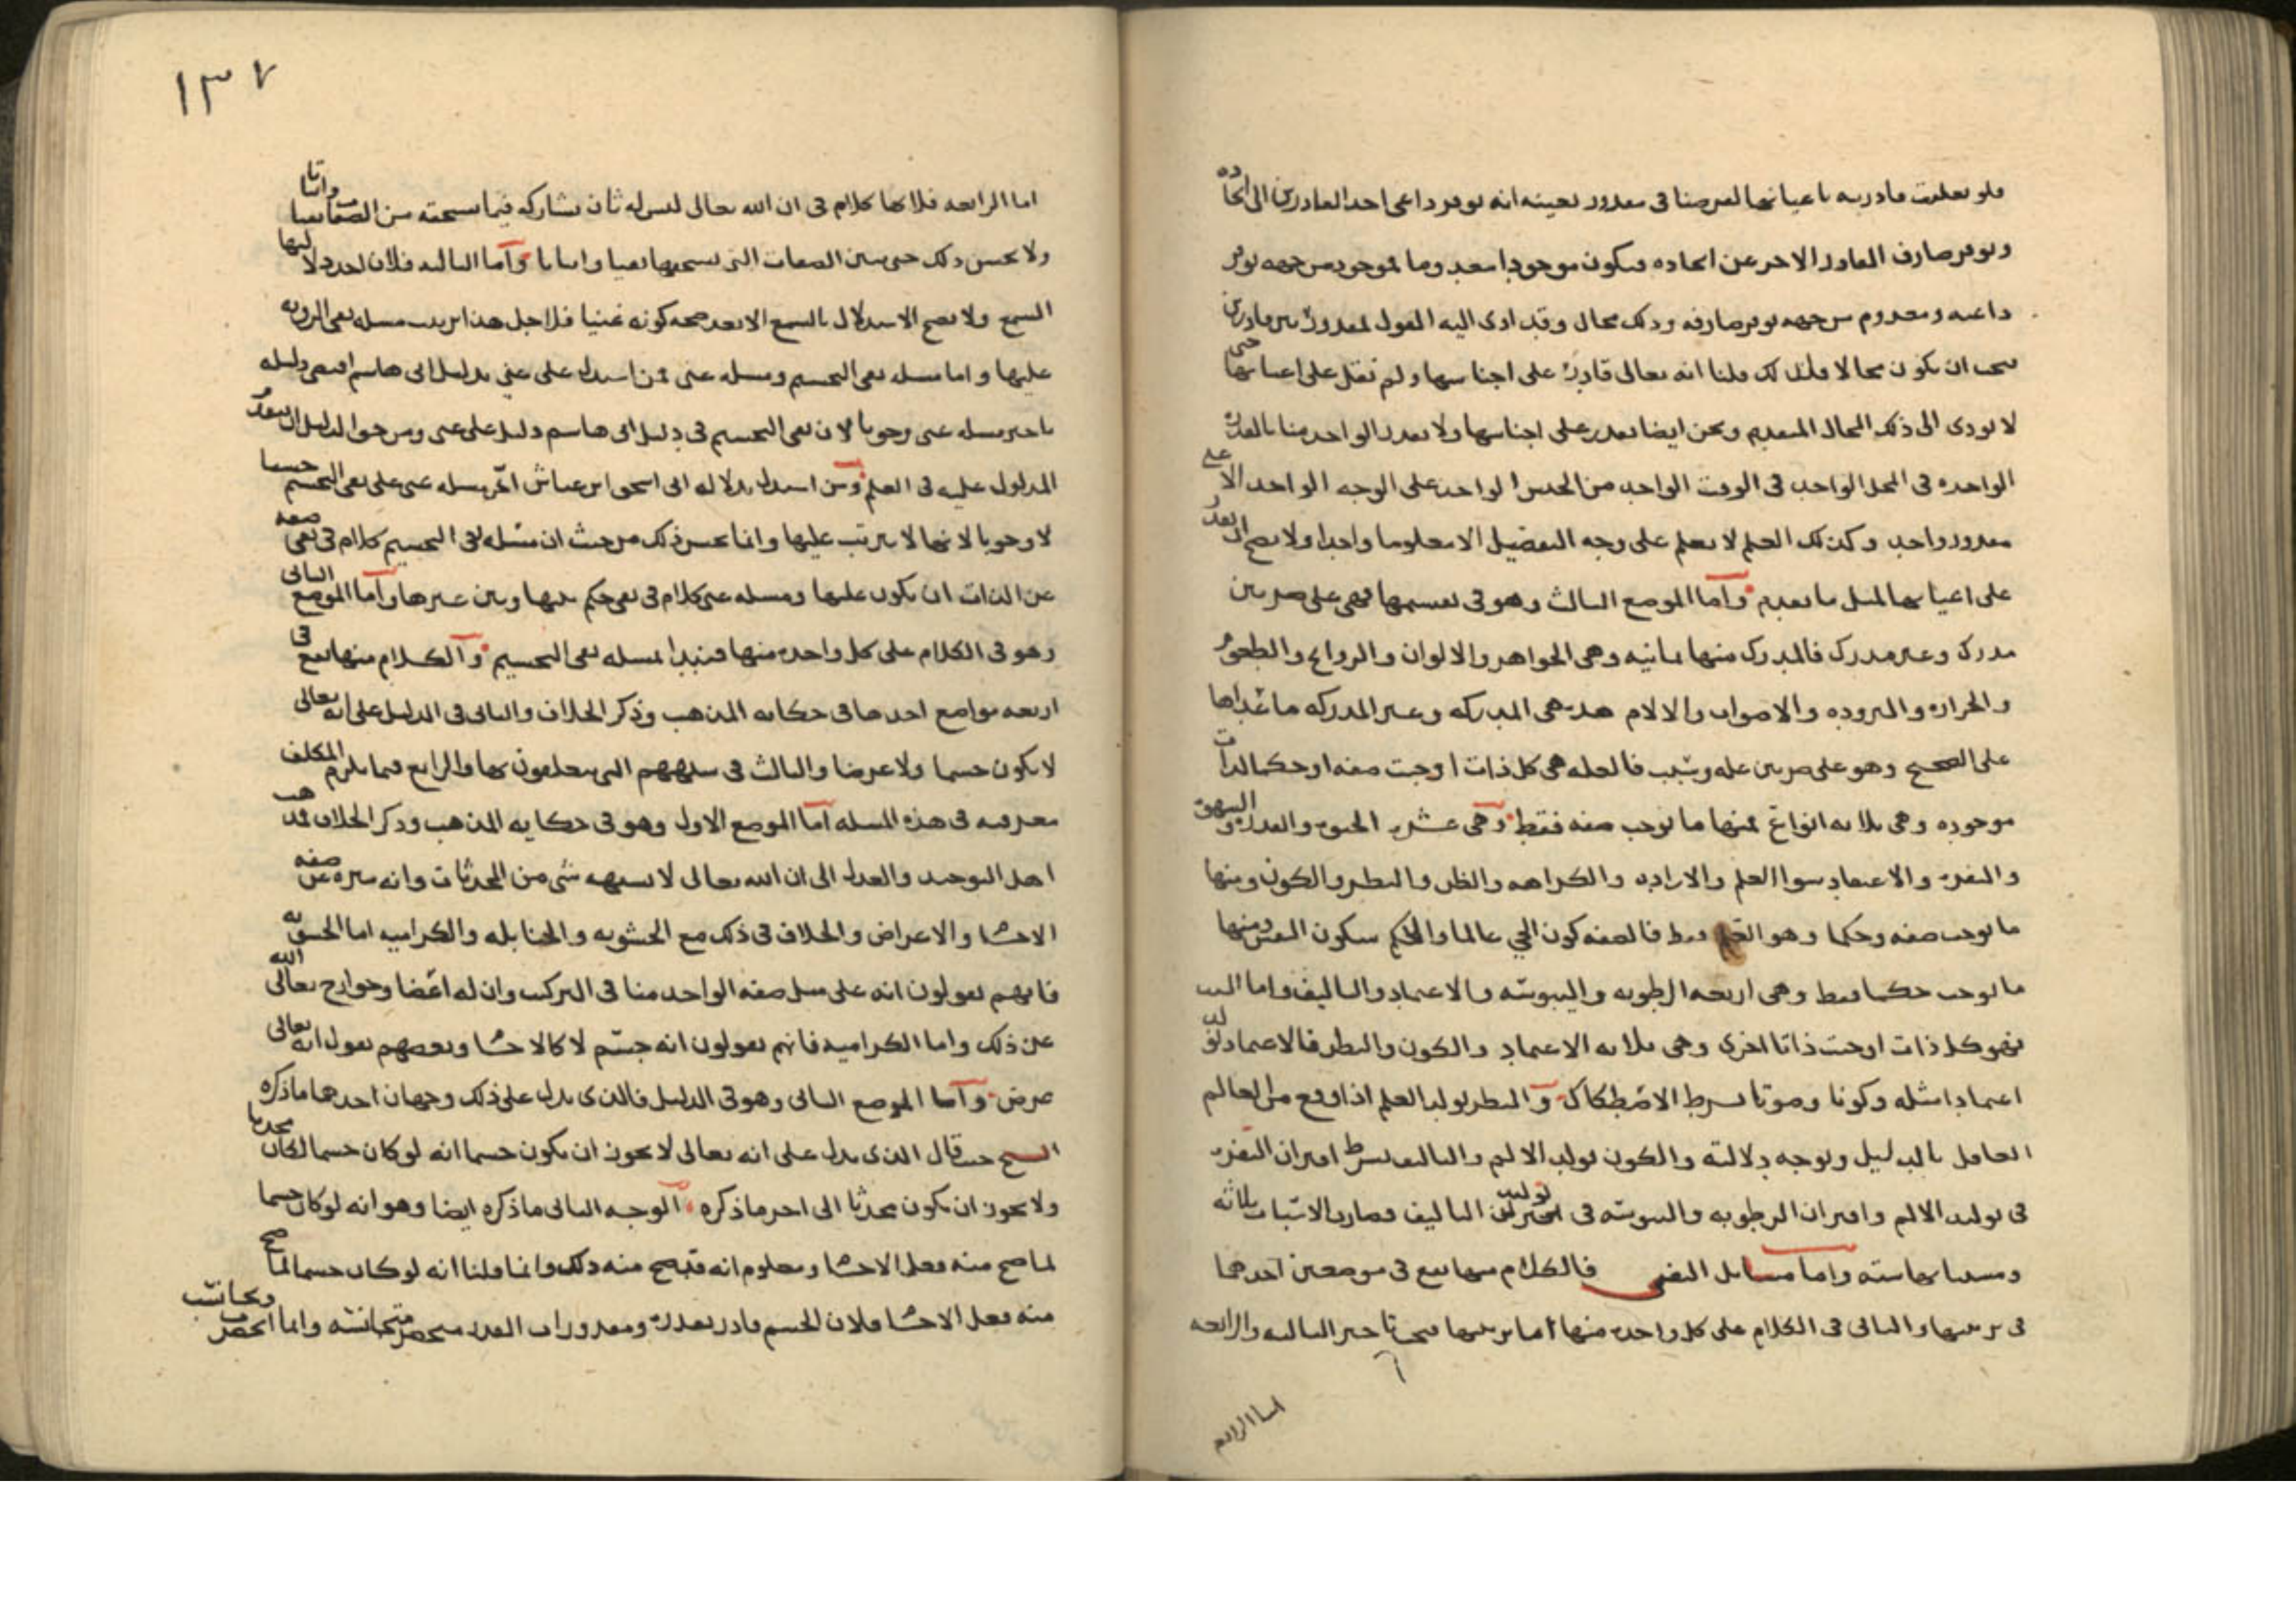 فلو تعلقت قادريه باعيانها لفرضنا في مقدور بعينه انه توفر داعي احد القادرين الى ايجاده
وتوفر صارف القادر الاخر عن ايجاده فيكون موجودا معدوما موجود من جهه توفر
داعيه ومعدوم من جهه توفر صارفه وذلك محال وقد ادى اليه القول بمقدور بين قادرين
يجب ان يكون محالا فلذلك قلنا انه تعالى قادر على اجناسها ولم نقل على اعيانها حتى
لا يودى الى ذلك المحال المتقدم ونحن ايضا نقدر على اجناسها ولا يقدر الواحد منا بالقدره
الواحده في المحل الواحد في الوقت الواحد من الجنس الواحد على الوجه الواحد الا على
مقدور واحد وكذلك العلم لا يعلم على وجه التفصيل الا معلوما واحدا ولا يصح ان يقدر
على اعيانها لمثل ما تقدم واما الموضع الثالث وهو في تقسيمها فهي على ضربين
مدرك وغير مدرك فالمدرك منها ثمانيه وهي الجواهر والالوان والروايح والطعوم
والحراره والبروده والاصوات والالام هذه هي المدركه وغير المدركه ما عداها
على الصحيح وهو على ضربين عله وسبب فالعله هي كل ذات اوجبت صفه او حكما لذات
موجوده وهي ثلاثه انواع فمنها ما يوجب صفه فقط وهي عشره الحيوه والقدره والشهوه
والنفره والاعتقاد سوا العلم والاراده والكراهه والظن والنظر والكون ومنها
ما يوجب صفه وحكما وهو العلم فقط فالصفه كون الحي عالما والحكم سكون النفس ومنها
ما يوجب حكما فقط وهي اربعه الرطوبه واليبوسه والاعتماد والتاليف واما السبب
فهو كل ذات اوجبت ذاتا اخرى وهي ثلاثه الاعتماد والكون والنظر فالاعتماد يولد
اعتمادا مثله وكونا وصوتا بشرط الاصطكاك والنظر يولد العلم اذا وقع من العالم
العاقل بالدليل وبوجه دلالته والكون يولد الالم والتاليف بشرط اقتران النفره
في توليد الالم واقتران الرطوبه واليبوسه في توليد التاليف فصارت الاسباب ثلاثه
ومسبباتها سته واما مسايل النفي فالكلام منها يقع في موضعين احدهما
في ترتيبها والثاني في الكلام على كل واحده منها اما ترتيبها فيجب تاخير الثالثه والرابعه
اما الرابعه
١٣٧
اما الرابعه فلانها كلام في ان الله تعالى ليس له ثان يشاركه فيما يستحقه من الصفات نفيا واثباتا
ولا يحسن ذلك حتى نبين الصفات التي يستحقها نفيا واثباتا واما الثالثه فلان احد دلايلها
السمع ولا يصح الاستدلال بالسمع الا بعد صحه كونه غنيا فلاجل هذا ترتبت مسله نفي الرويه
عليها واما مسله نفي التجسيم ومسله غني فمن استدل على غني بدليل ابي هاشم اقتضى دليله
تاخير مسله غني وجوبا لان نفي التجسيم في دليل ابي هاشم دليل على غني ومن حق الدليل ان يتقدم
المدلول عليه في العلم ومن استدل بدلاله ابي اسحق ابن عياش اخر مسله غني على نفي التجسيم حسنا
لا وجوبا لانها لا يترتب عليها وانما يحسن ذلك من حيث ان مسله نفي التجسيم كلام في نفي صفه
عن الذات ان يكون عليها ومسله غني كلام في نفي حكم بينها وبين غيرها واما الموضع الثاني
وهو في الكلام على كل واحده منها فنبدا بمسله نفي التجسيم والكلام منها يقع في
اربعه مواضع احدها في حكايه المذهب وذكر الخلاف والثاني في الدليل على انه تعالى
لا يكون جسما ولا عرضا والثالث في شبههم التي يتعلقون بها والرابع فيما يلزم المكلف
معرفته في هذه المسله اما الموضع الاول وهو في حكايه المذهب وذكر الخلاف فذهب
اهل التوحيد والعدل الى ان الله تعالى لا يشبهه شي من المحدثات وانه منزه عن صفه
الاجسام والاعراض والخلاف في ذلك مع الحشويه والحنابله والكراميه اما الحشويه
فانهم يقولون انه على مثل صفه الواحد منا في التركيب وان له اعضا وجوارح تعالى الله
عن ذلك واما الكراميه فانهم يقولون انه جسم لا كالاجسام وبعضهم يقول انه تعالى
عرض واما الموضع الثاني وهو في الدليل فالذى يدل على ذلك وجهان احدهما ماذكره
الشيخ حيث قال الذى يدل على انه تعالى لا يجوز ان يكون جسما انه لو كان جسما لكان محدثا
ولا يجوز ان يكون محدثا الى اخر ماذكره الوجه الثاني ماذكره ايضا وهو انه لو كان جسما
لما صح منه فعل الاجسام ومعلوم انه قد صح منه ذلك وانما قلنا انه لو كان جسما لما صح
منه فعل الاجسام فلان الجسم قادر بقدره ومقدورات القدر منحصره متجانسه وانما انحصرت وتجانست